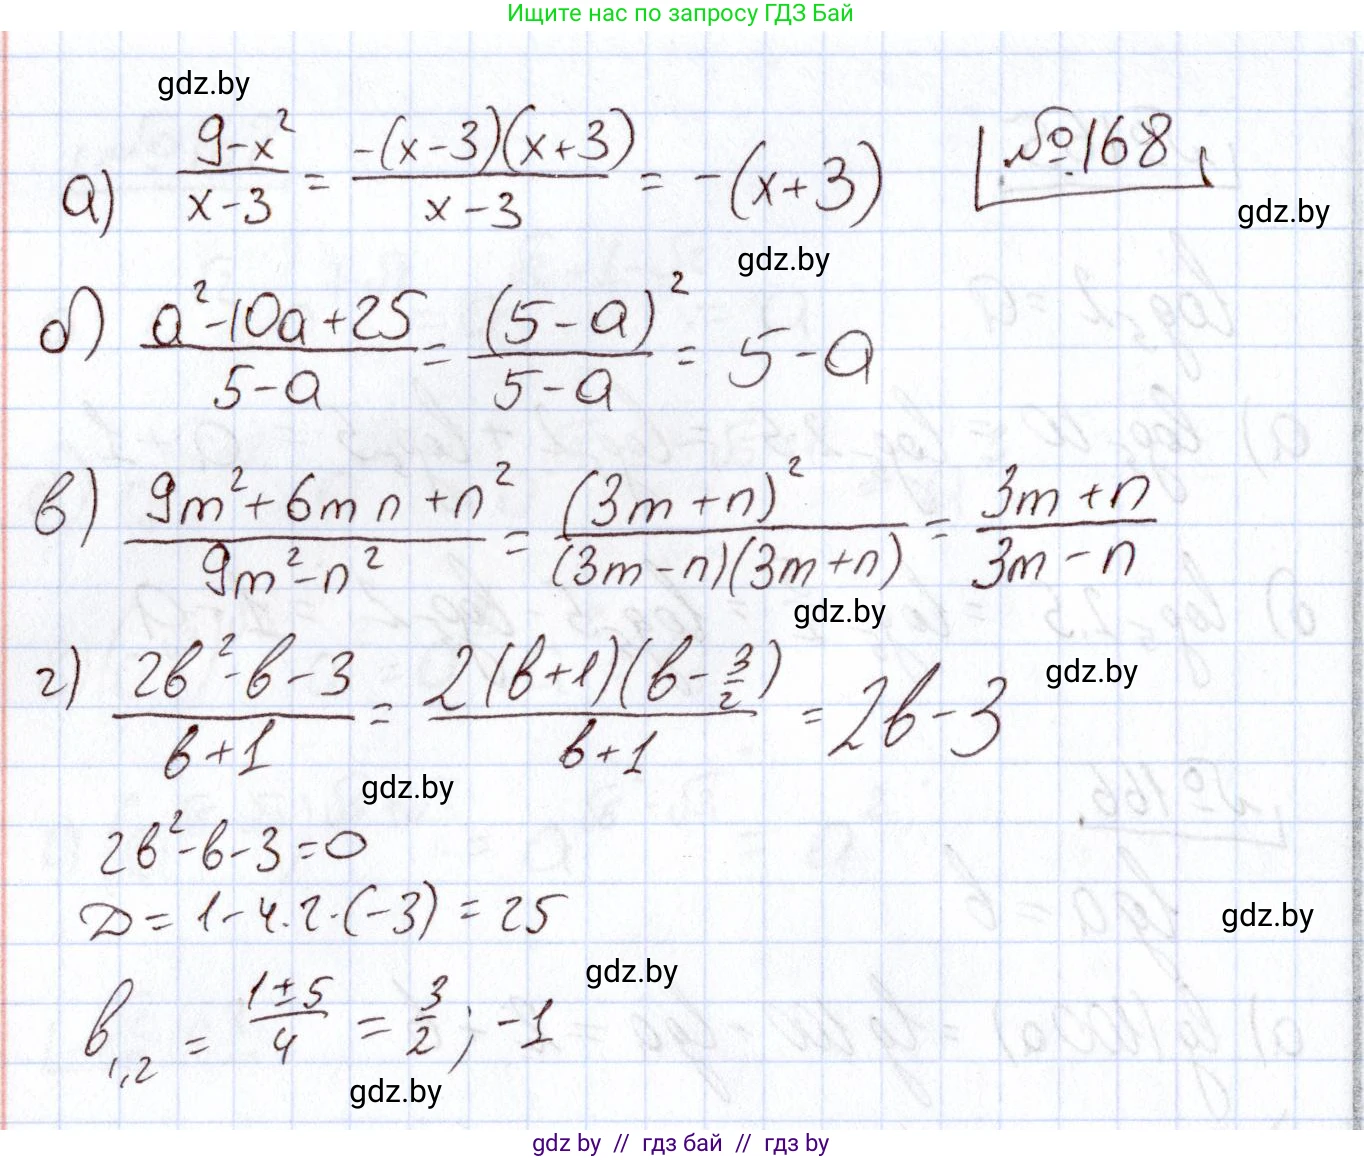 Ищите нас по запросу ГДЗ Бай
gdz.by
№168
а) (9-x²)/(x-3) = (-(x-3)(x+3))/(x-3) = -(x+3)
gdz.by
gdz.by
б) (a²-10a+25)/(5-a) = (5-a)²/(5-a) = 5-a
в) (9m²+6mn+n²)/(9m²-n²) = (3m+n)²/((3m-n)(3m+n)) = (3m+n)/(3m-n)
gdz.by
г) (2в²-в-3)/(в+1) = (2(в+1)(в-3/2))/(в+1) = 2в-3
gdz.by
gdz.by
2в²-в-3=0
D = 1-4·2·(-3) = 25
gdz.by
в₁,₂ = (1±5)/4 = 3/2; -1
gdz.by
gdz.by
gdz by // гдз бай // гдз by